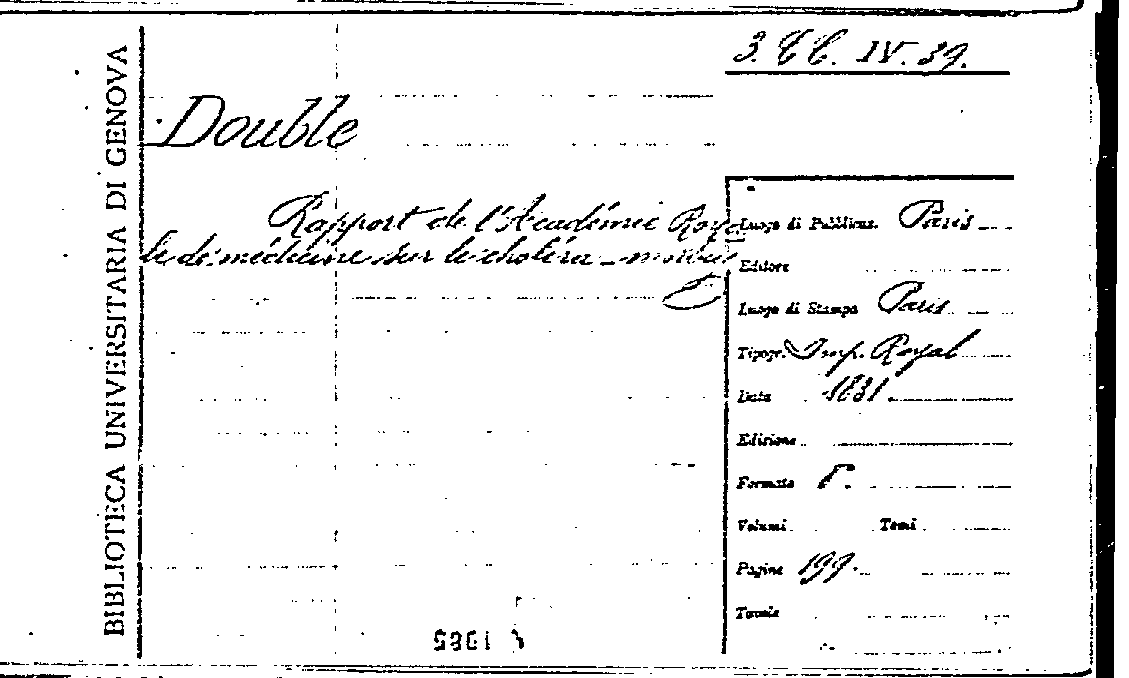 3. CC. IV. 39.
BIBLIOTECA UNIVERSITARIA DI GENOVA
Double
Rapport de l'Académie Roya
le de médecine sur le choléra-morbus
Luogo di Pubblicaz. Paris
Editore
Luogo di Stampa Paris
Tipogr. Imp. Royal
Data 1831
Edizione
Formato 8°.
Volumi Tomi
Pagine 199.
Tavole
1985